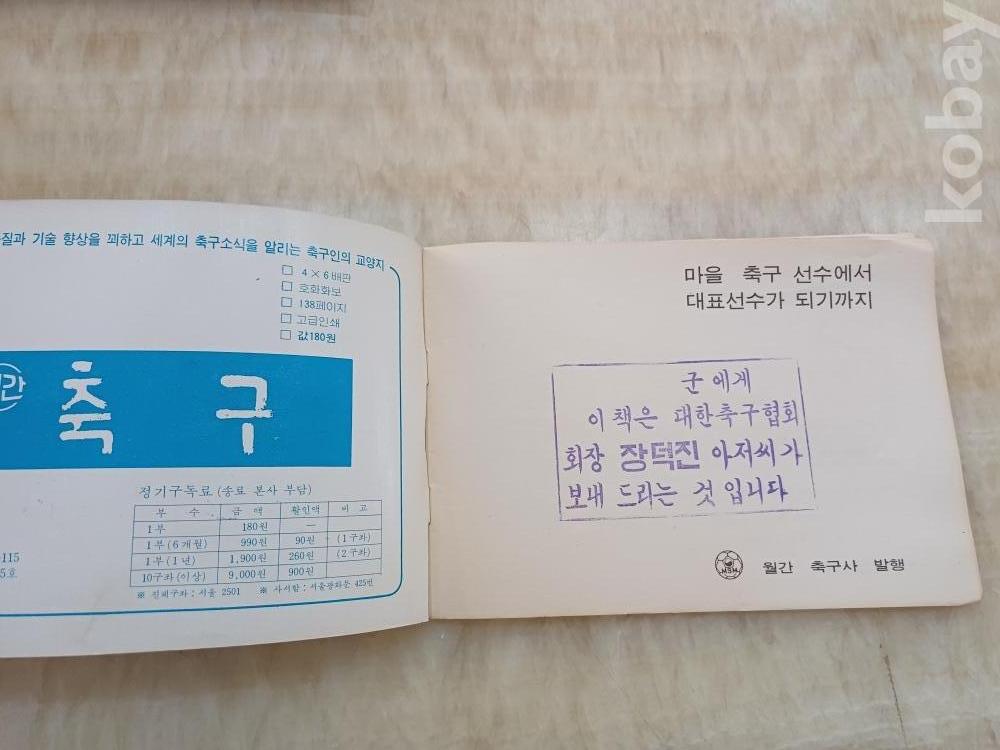 질과 기술 향상을 꾀하고 세계의 축구소식을 알리는 축구인의 교양지
□ 4×6배판
□ 호화화보
□ 138페이지
□ 고급인쇄
□ 값180원
간 축 구
정기구독료 (송료 본사 부담)
부 수 금 액 할인액 비 고
1부 180원 —
1부(6개월) 990원 90원 (1구좌)
1부(1년) 1,900원 260원 (2구좌)
10구좌(이상) 9,000원 900원
※ 진체구좌 : 서울 2501 ※ 사서함 : 서울광화문 425번
115
5호
마을 축구 선수에서
대표선수가 되기까지
군에게
이 책은 대한축구협회
회장 장덕진 아저씨가
보내 드리는 것 입니다
MSM 월간 축구사 발행
kobay